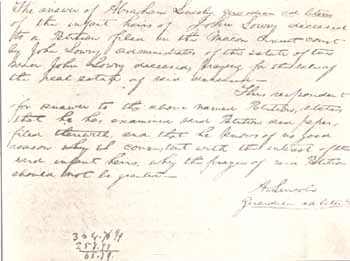 The answer of Abraham Lincoln guardian ad litem
of the infant heirs of John Lowry deceased
to a Petition filed in the Macon Circuit court
by John Lowry, administrator of the estate of
John Lowry deceased, praying for the
the real estate of said deceased—
This respondent
for answer to the above named Petition, states
that he has examined said Petition and paper
filed therewith, and that he knows of no good
reason why consistent with the interest of the
said infant heirs, why the prayer of said Petition
should not be granted—
A. Lincoln
Guardian ad litem